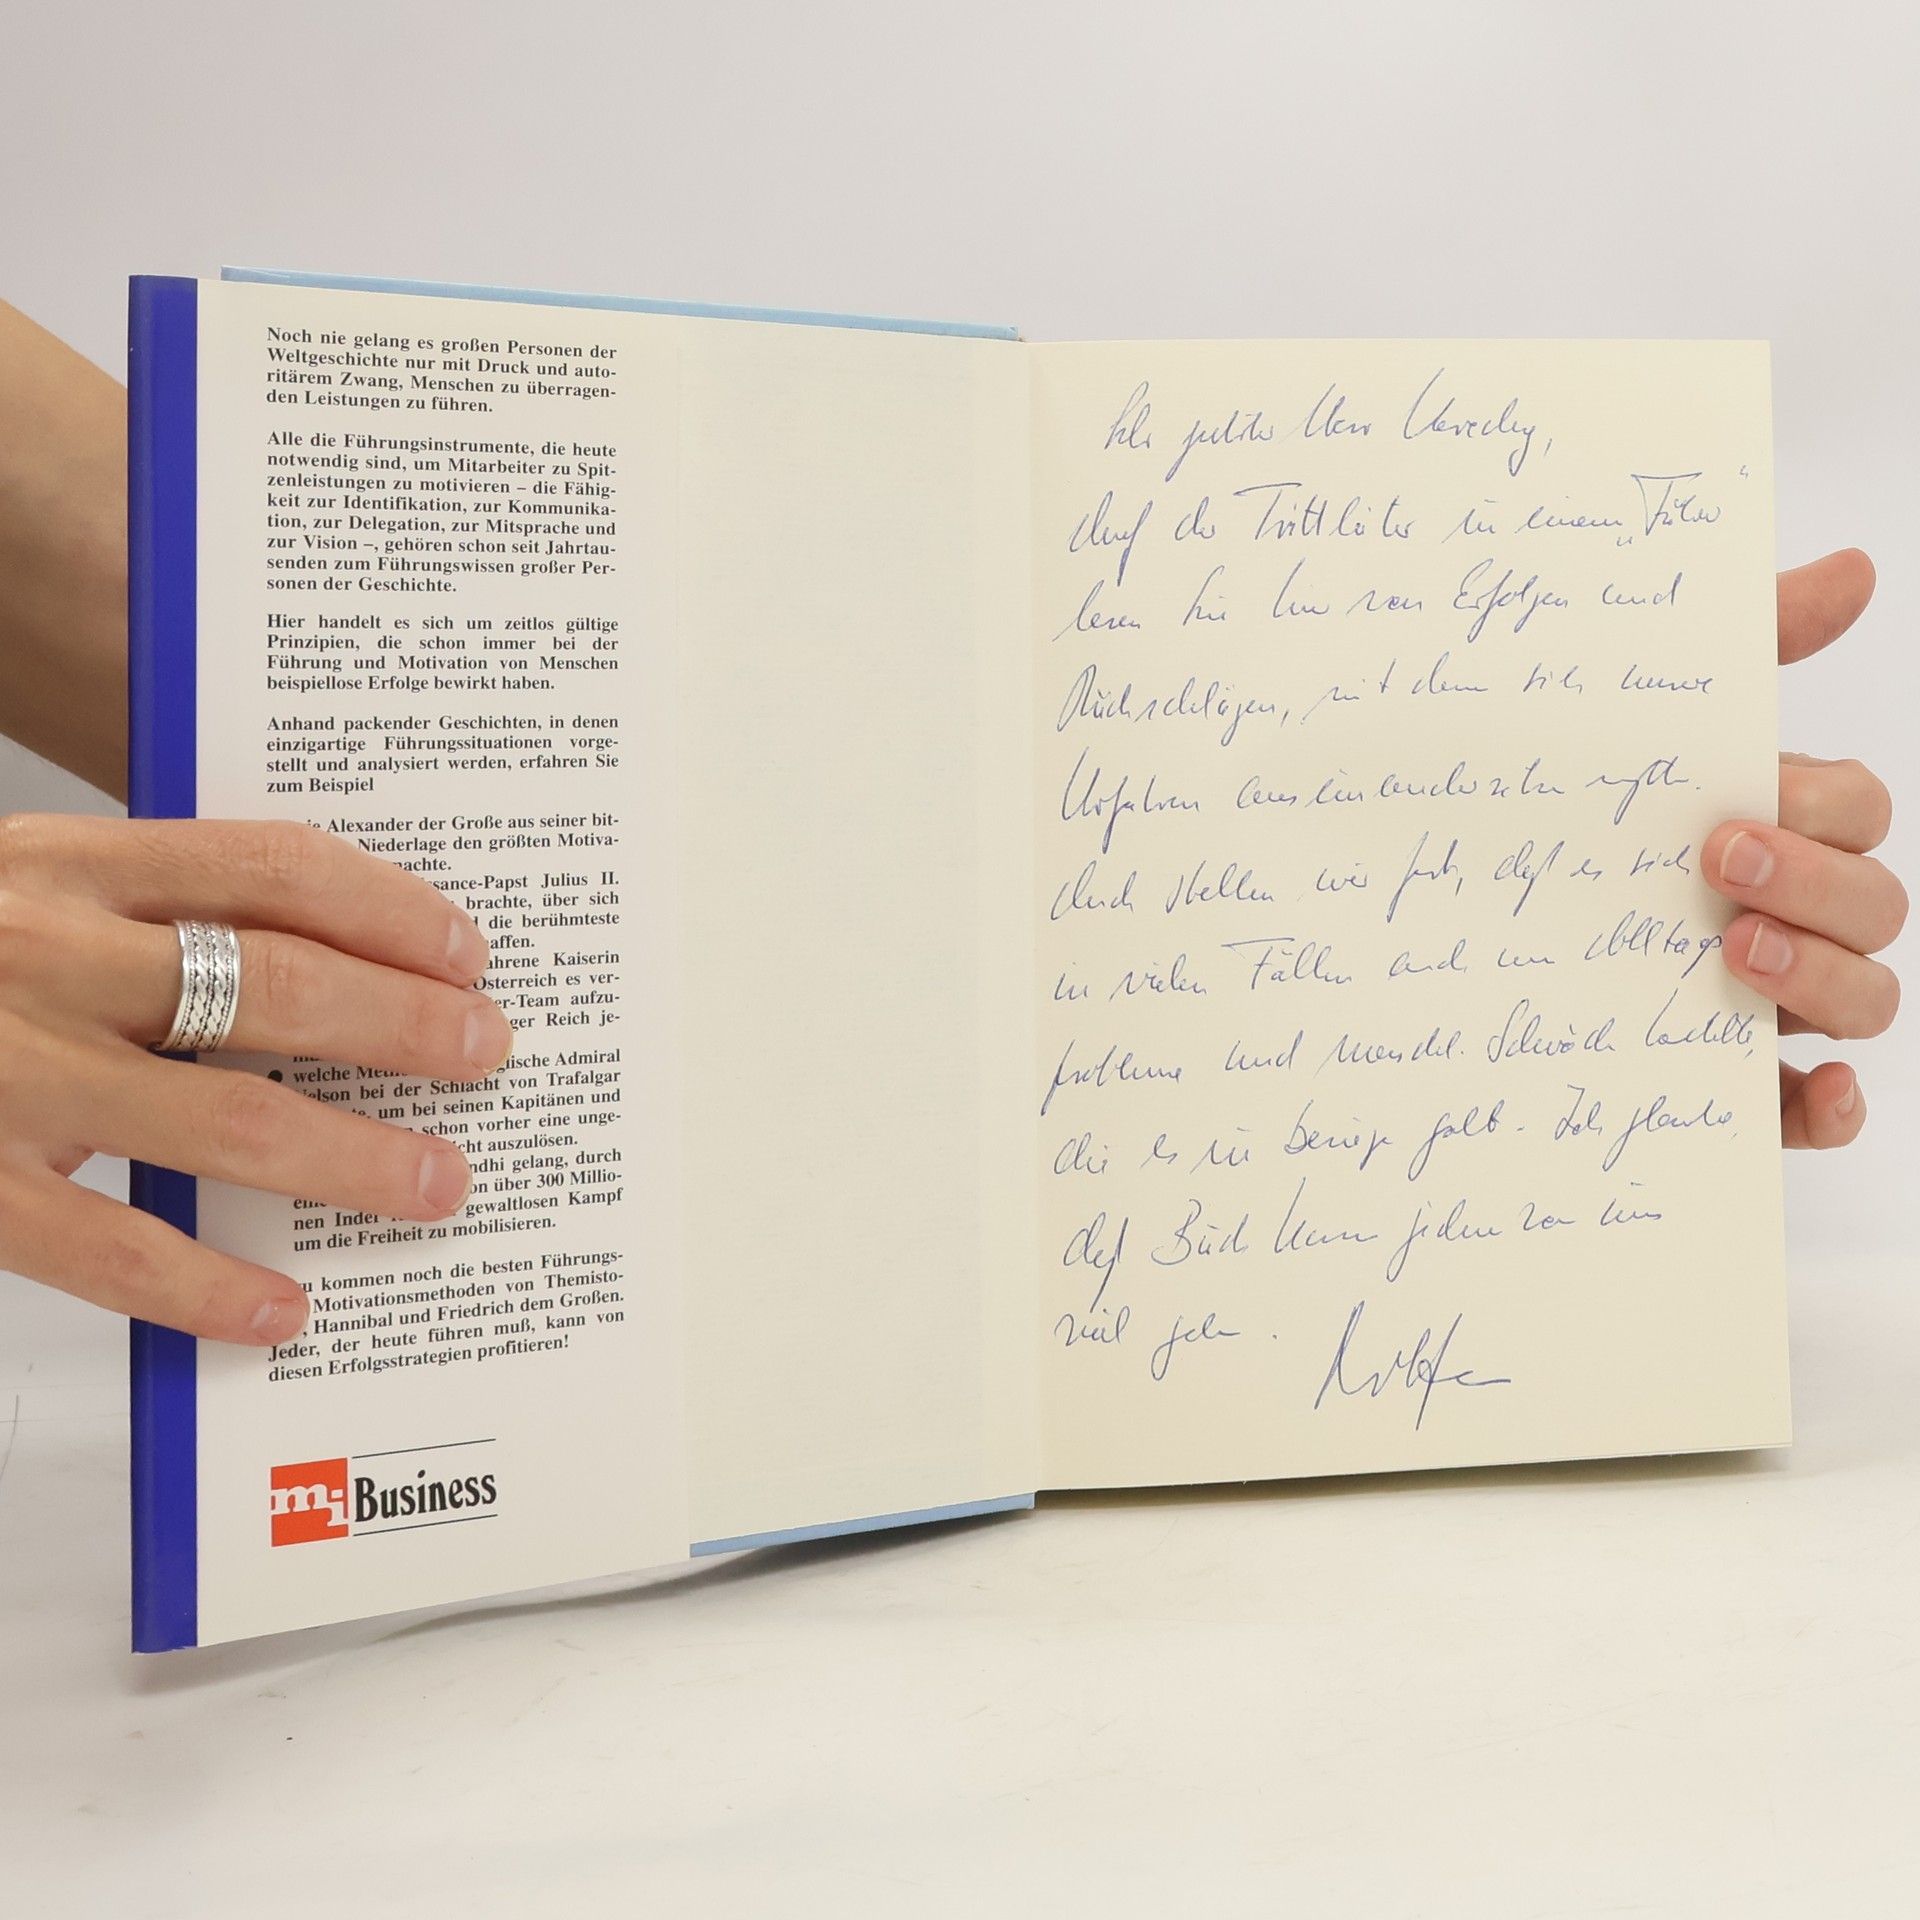 Noch nie gelang es großen Personen der
Weltgeschichte nur mit Druck und auto-
ritärem Zwang, Menschen zu überragen-
den Leistungen zu führen.
Alle die Führungsinstrumente, die heute
notwendig sind, um Mitarbeiter zu Spit-
zenleistungen zu motivieren – die Fähig-
keit zur Identifikation, zur Kommunika-
tion, zur Delegation, zur Mitsprache und
zur Vision –, gehören schon seit Jahrtau-
senden zum Führungswissen großer Per-
sonen der Geschichte.
Hier handelt es sich um zeitlos gültige
Prinzipien, die schon immer bei der
Führung und Motivation von Menschen
beispiellose Erfolge bewirkt haben.
Anhand packender Geschichten, in denen
einzigartige Führungssituationen vorge-
stellt und analysiert werden, erfahren Sie
zum Beispiel
Alexander der Große aus seiner bit-
Niederlage den größten Motiva-
Papst Julius II.
brachte, über sich
die berühmteste
Kaiserin
Österreich es ver-
-Team aufzu-
Reich je-
Admiral
welche
bei der Schlacht von Trafalgar
um bei seinen Kapitänen und
schon vorher eine unge-
auszulösen.
gelang, durch
über 300 Millio-
nen Inder gewaltlosen Kampf
um die Freiheit zu mobilisieren.
kommen noch die besten Führungs-
Motivationsmethoden von Themisto-
, Hannibal und Friedrich dem Großen.
Jeder, der heute führen muß, kann von
diesen Erfolgsstrategien profitieren!
mi Business
Herr
auf der Trittleiter zu einem „Führer“
lesen Sie hier von Erfolgen und
Rückschlägen, mit denen sich unsere
Vorfahren auseinandersetzen mußten.
Auch stellen wir fest, daß es sich
in vielen Fällen auch um Alltags
probleme und Schwäche handelte,
die es zu besiegen galt. Ich glaube,
das Buch kann jedem von uns
viel geben.